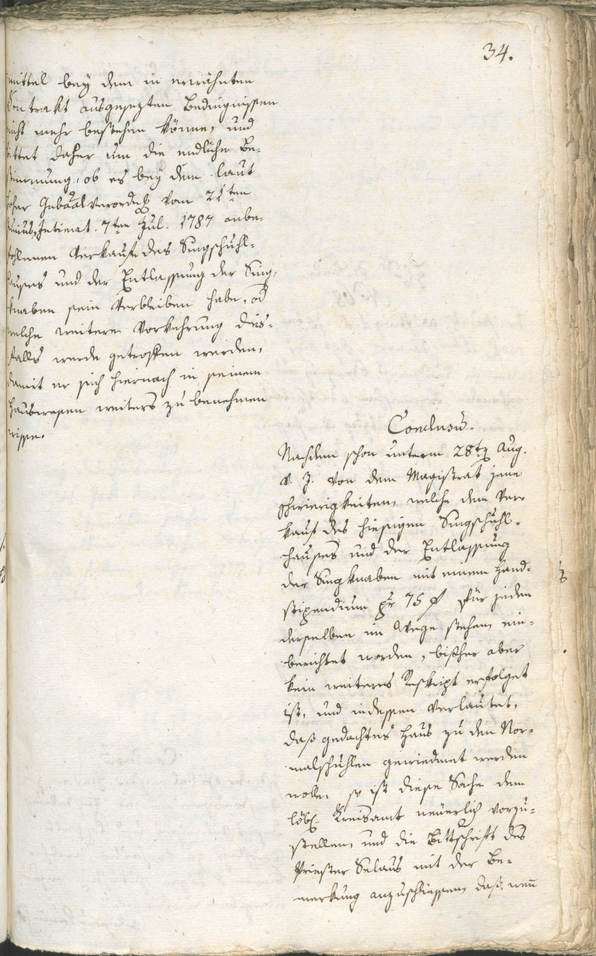 34.
mittel bey dem in erwähnten
Contrakt ausgesezten Bedingnissen
nicht mehr bestehen könne, und
bittet daher um die endliche Be-
stimmung, ob es bey dem laut
hoher Gubernalverordg vom 21ten
Junius, Intimat. 7ten Jul. 1787 anbe-
fohlenen Verkauf des Singschuhl-
hauses und der Entlassung der Sing-
knaben sein Verbleiben habe, od
welche weitere Vorkehrung dies-
falls werde getroffen werden,
damit er sich hiernach in seinem
Hauswesen weiters zu benehmen
wisse.
Conclusū.
Nachdem schon unterm 28ten Aug.
v. J. von dem Magistrat jene
Schwierigkeiten, welche dem Ver-
kauf des hiesigen Singschuhl-
hauses und der Entlassung
der Singknaben mit einem Hand-
stipendium pr 75 f für jeden
derselben im Wege stehen, ein-
berichtet worden, bisher aber
kein weiteres Reskript erfolget
ist, und indessen verlautet,
daß gedachtes Haus zu den Nor-
malschuhlen gewiedmet werden
wolle, so ist diese Sache dem
löbl. Kreisamt neuerlich vorzu-
stellen, und die Bittschrift des
Priester mit der Be-
merkung anzuschliessen, daß, weñ